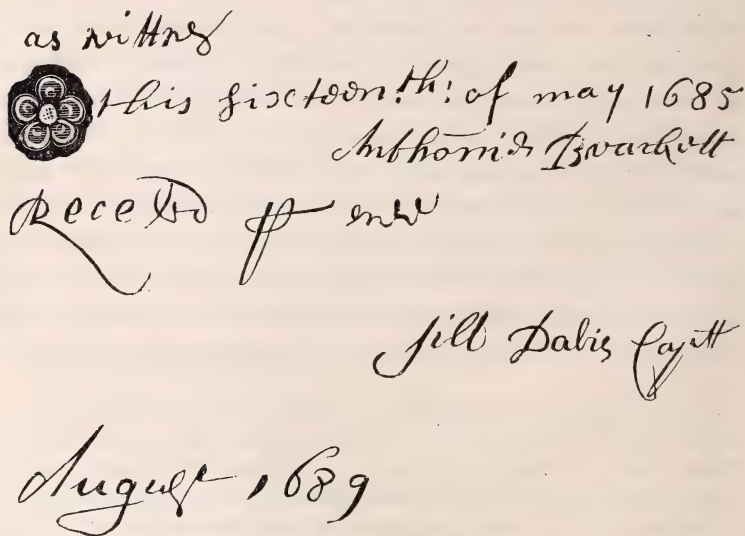 as wittnes
this sixteen:th: of may 1685
Anthonie Brackett
Receved ꝑ me
Sill Davis Capitt
August 1689